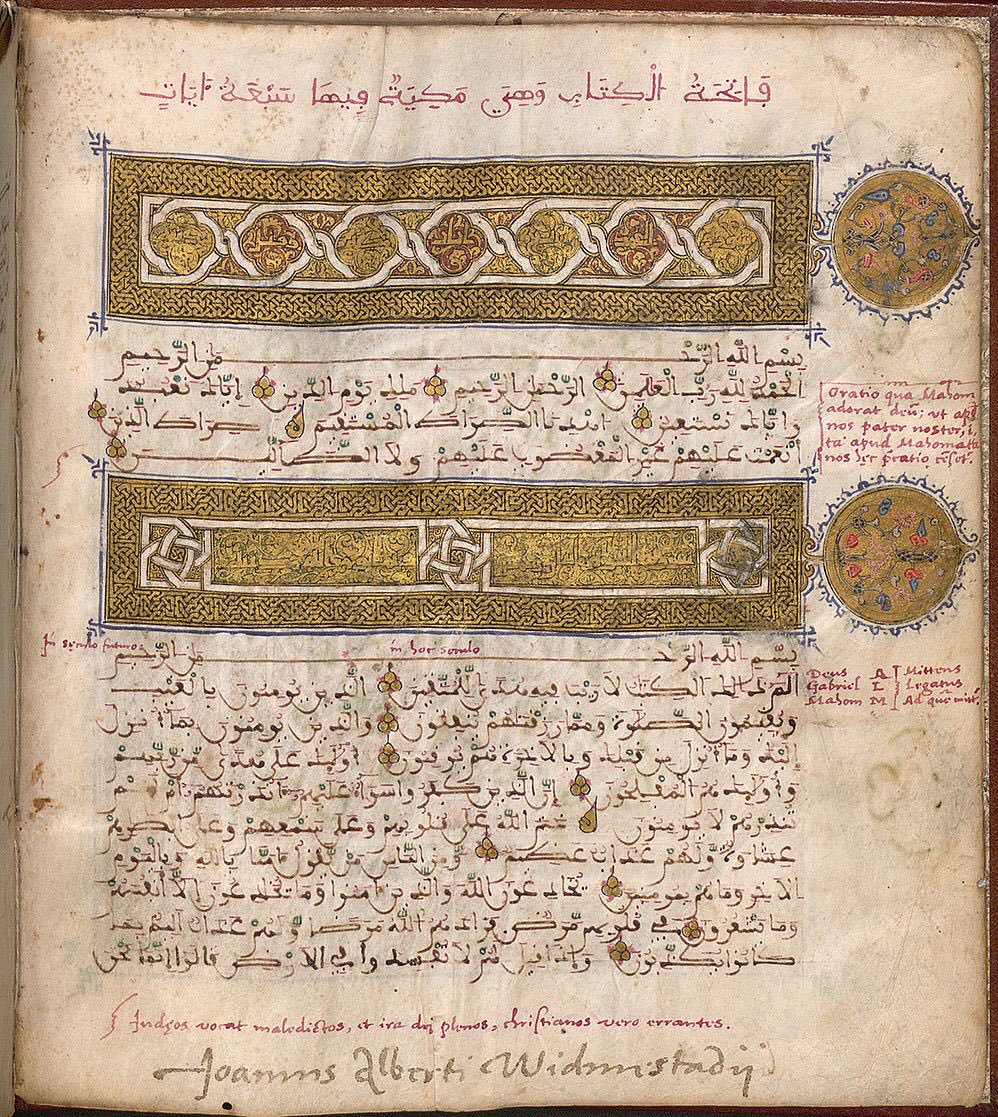 فَاتِحَةُ الْكِتَابِ وَهِيَ مَكِيَّةٌ فِيهَا سَبْعَةُ ءَايَاتٍ
بسم الله الرحمن الرحيم
الحمد لله رب العلمين الرحمن الرحيم ملك يوم الدين إياك نعبد
وإياك نستعين اهدنا الصراط المستقيم صراط الذين
أنعمت عليهم غير المغضوب عليهم ولا الضالين
Oratio qua Mahom
adorat deū; ut apd
nos pater noster, i
ta apud Mahometa
nos hęc p̄catio
In sęculo futuro
in hoc seculo
بسم الله الرحمن الرحيم
الم ذلك الكتب لا ريب فيه هدى للمتقين الذين يومنون بالغيب
ويقيمون الصلوة ومما رزقنهم ينفقون والذين يومنون بما أنزل
إليك وما أنزل من قبلك وبالاخرة هم يوقنون أولئك على هدى من ربهم
وأولئك هم المفلحون إن الذين كفروا سواء عليهم ءانذرتهم أم لم
تنذرهم لا يومنون ختم الله على قلوبهم وعلى سمعهم وعلى أبصرهم
غشوة ولهم عذاب عظيم ومن الناس من يقول ءامنا بالله وباليوم
الاخر وما هم بمومنين يخدعون الله والذين ءامنوا وما يخدعون إلا أنفسهم
وما يشعرون في قلوبهم مرض فزادهم الله مرضا ولهم عذاب أليم بما
كانوا يكذبون وإذا قيل لهم لا تفسدوا في الارض قالوا إنما نحن
Deus A Mittens
Gabriel L Legatus
Mahom M Ad quē
Iudęos vocat maledictos, et ira dei plenos, christianos vero errantes.
Joannis Alberti Widmestadij